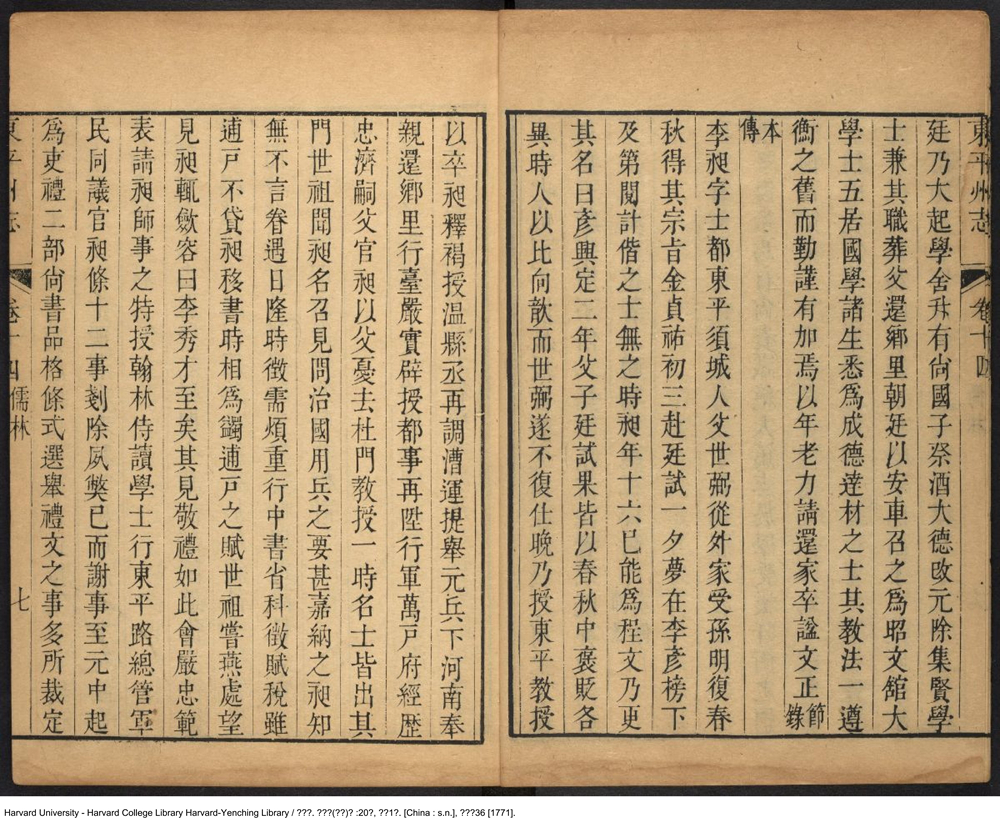 東平州志 卷十四
廷乃大起學舍升有尙國子祭酒大德改元除集賢學
士兼其職葬父還鄉里朝廷以安車召之爲昭文舘大
學士五居國學諸生悉爲成德達材之士其教法一遵
衡之舊而勤謹有加焉以年老力請還家卒謚文正節錄
本傳
李昶字士都東平須城人父世弼從外家受孫明復春
秋得其宗旨金貞祐初三赴廷試一夕夢在李彥榜下
及第閱計偕之士無之時昶年十六已能爲程文乃更
其名曰彥興定二年父子廷試果皆以春秋中褒貶各
異時人以比向歆而世弼遂不復仕晚乃授東平教授
以卒昶釋褐授温縣丞再調漕運提舉元兵下河南奉
親還鄉里行臺嚴實辟授都事再陞行軍萬戸府經歷
忠濟嗣父官昶以父憂去杜門教授一時名士皆出其
門世祖聞昶名召見問治國用兵之要甚嘉納之昶知
無不言眷遇日隆時徵需煩重行中書省科徵賦稅雖
逋戸不貸昶移書時相爲蠲逋戸之賦世祖嘗燕處望
見昶輒斂容曰李秀才至矣其見敬禮如此會嚴忠範
表請昶師事之特授翰林侍讀學士行東平路總管軍
民同議官昶條十二事剗除夙獘已而謝事至元中起
爲吏禮二部尙書品格條式選舉禮文之事多所裁定
東平州志 卷十四 儒林 七
Harvard University - Harvard College Library Harvard-Yenching Library / ???. ???(??)? :20?, ??1?. [China : s.n.], ???36 [1771].